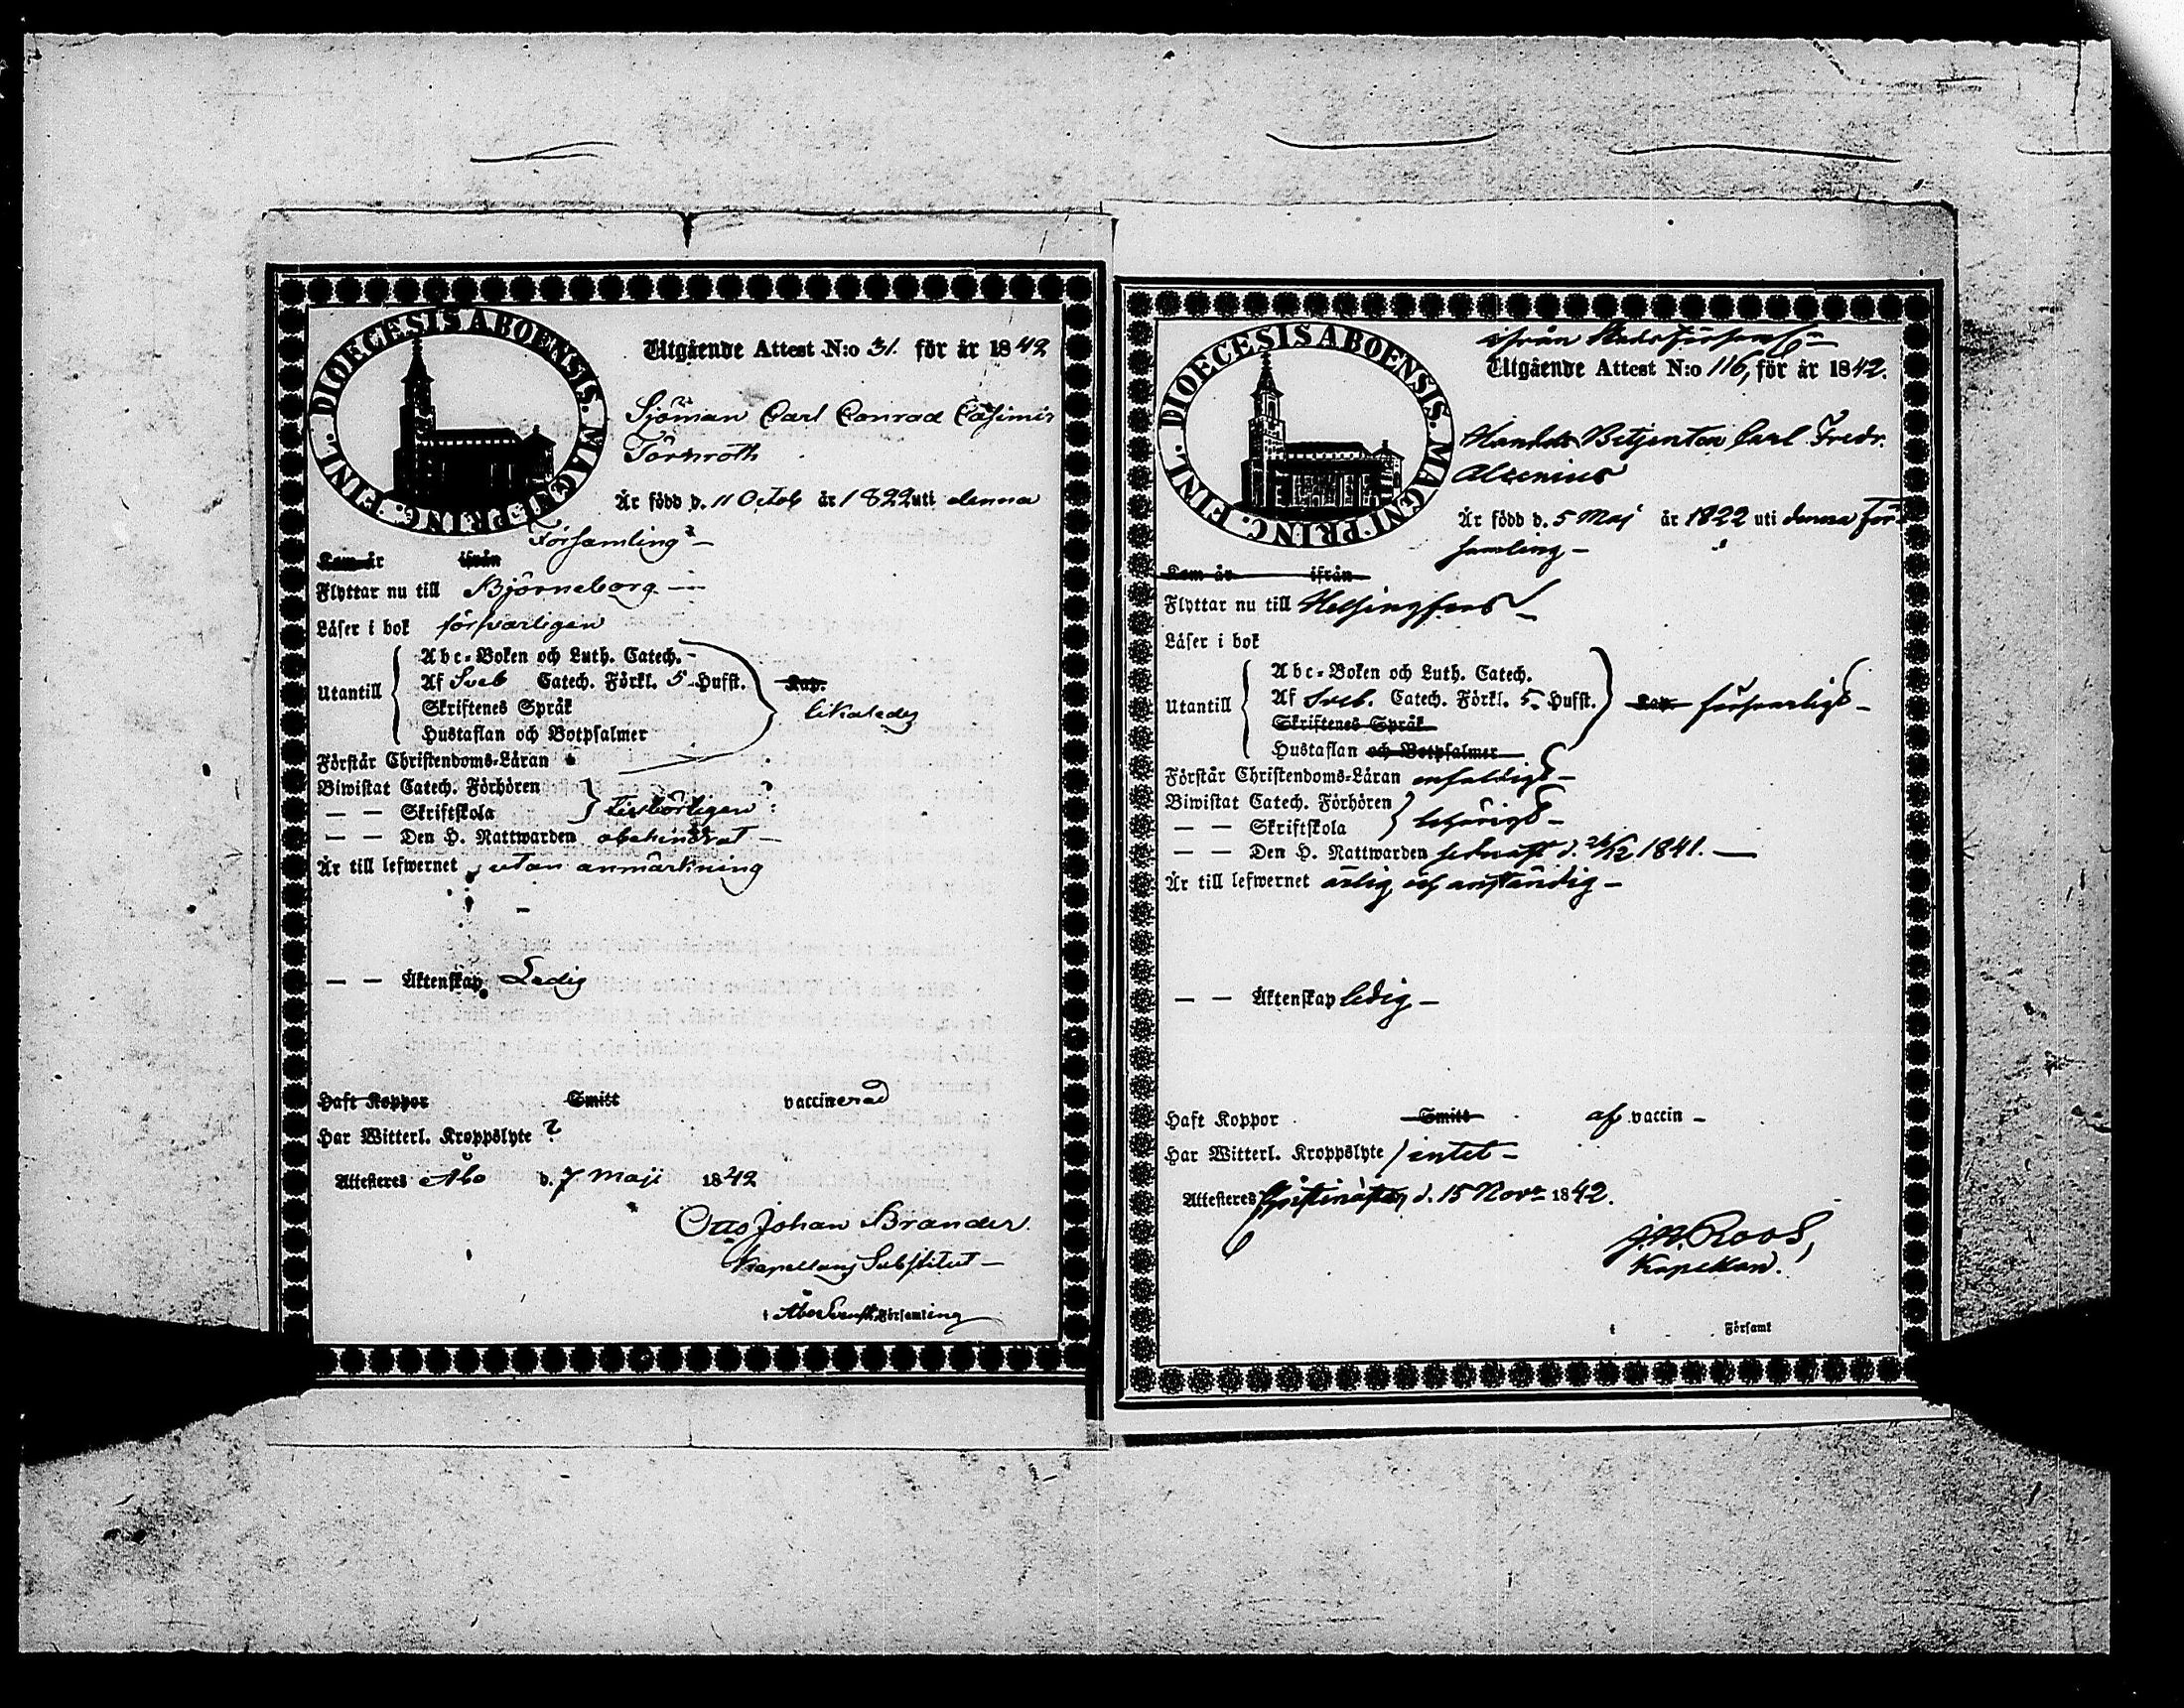 DIOECESIS ABOENSIS. MAGNI PRINC. FINL.
Utgående Attest N:o 31. för år 1842
Sjöman Carl Conrad Casimir
Törnroth
Är född d. 11 Octob år 1822 uti denna
Församling
Kom år ifrån
Flyttar nu till Björneborg
Läser i bok försvarligen
Utantill
Abc-Boken och Luth. Catech.
Af Sveb Catech. Förkl. 5 Hufst. Kap.
Skriftenes Språk likaledes
Hustaflan och Botpsalmer
Förstår Christendoms-Läran
Biwistat Catech. Förhören
— — Skriftskola tillbörligen
— — Den H. Nattwarden obehindrat
Är till lefwernet utan anmärkning
— — Äktenskap Ledig
Haft Koppor Smitt vaccinerad
Har Witterl. Kroppslyte ?
Attesteres Åbo d. 7 Maji 1842
Otto Johan Brander
Kapellans Substitut
i Åbo Svensk Församling
DIOECESIS ABOENSIS. MAGNI PRINC. FINL.
ifrån
Utgående Attest N:o 116, för år 1842.
Handels Betjenten Carl Fredr.
Alcenius
Är född d. 5 Maj år 1822 uti denna För-
samling
Kom år ifrån
Flyttar nu till Helsingfors
Läser i bok
Utantill
Abc-Boken och Luth. Catech.
Af Sveb. Catech. Förkl. 5 Hufst. Kap. försvarligt
Skriftenes Språk
Hustaflan och Botpsalmer
Förstår Christendoms-Läran enfaldigt
Biwistat Catech. Förhören
— — Skriftskola behörigt
— — Den H. Nattwarden sednast d. 26/12 1841.
Är till lefwernet ärlig och anständig
— — Äktenskap ledig
Haft Koppor Smitt af vaccin
Har Witterl. Kroppslyte intet
Attesteres Christinæstad d. 15 Nov. 1842.
J.N. Roos,
Kapellan.
i Församl